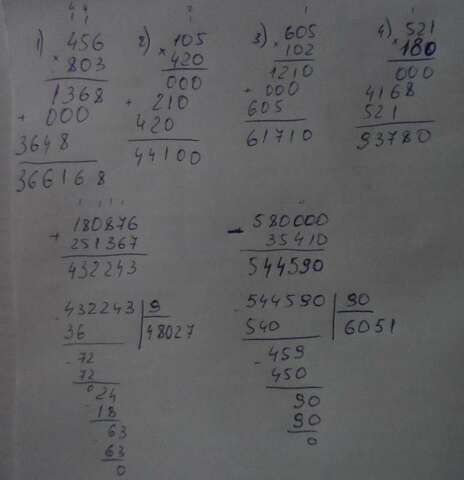 1) 456
× 803
1368
+ 000
3648
366168
2) 105
× 420
000
+ 210
420
44100
3) 605
× 102
1210
+ 000
605
61710
4) 521
× 180
000
4168
521
93780
180876
+ 251367
432243
- 580000
35410
544590
- 432243 | 9
36 | 48027
- 72
72
0 24
- 18
63
- 63
0
- 544590 | 90
540 | 6051
- 459
450
90
90
0